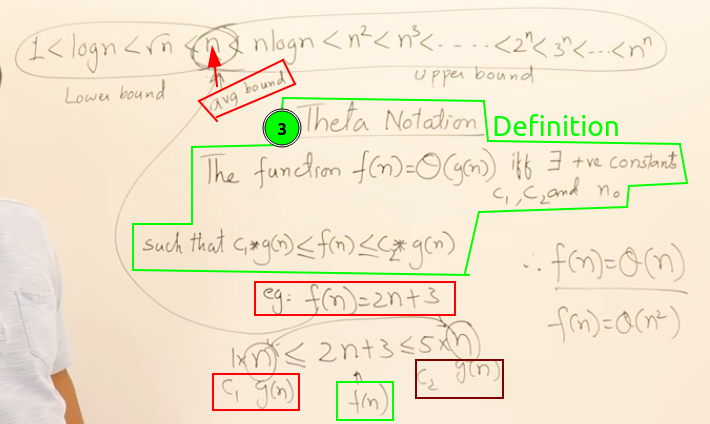 1 < logn < √n < n < nlogn < n² < n³ < - - - - - < 2ⁿ < 3ⁿ < ... < nⁿ
Lower bound
avg bound
Upper bound
3 Theta Notation Definition
The function f(n)=Θ(g(n)) iff ∃ +ve constants
c₁, c₂ and n₀
such that c₁*g(n) ≤ f(n) ≤ c₂* g(n)
∴ f(n)=Θ(n)
eg: f(n)=2n+3
f(n)=Θ(n²)
1×n ≤ 2n+3 ≤ 5×n
c₁ g(n)
f(n)
c₂ g(n)